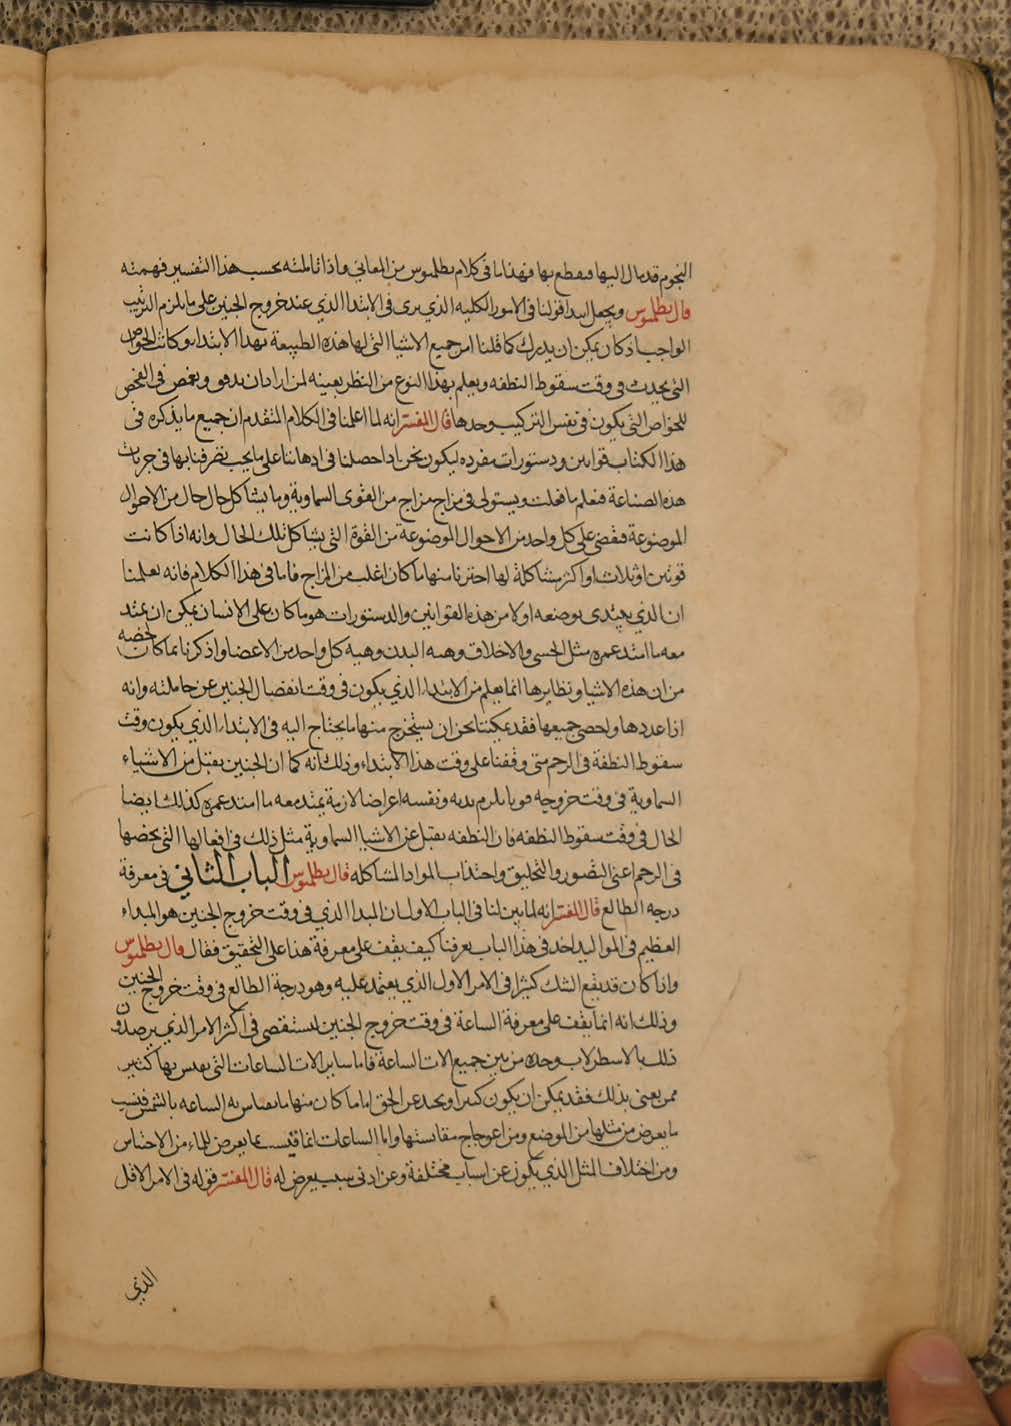 النجوم قد مال اليها فيقطع بها فهذا ما في كلام بطلميوس من المعاني واذا تاملته بحسب هذا التفسير فهمته
قال بطلميوس ويجعل ابتدا قولنا في الامور الكلية الذي يرى في الابتدا الذي عند خروج الجنين على ما يلزم الترتيب
الواجب اذ كان يمكن ان يدرك كما قلنا امر جميع الاشيا التي لها هذه الطبيعة بهذا الابتدا وكانت الخواص
التي تحدث في وقت سقوط النطفه ويعلم بهذا النوع من النظر بعينه لمن اراد ان يدقق ويغمض في الفحص
للخواص التي يكون في نفس التركيب وحدها قال المفسر انه لما اعلمنا في الكلام المتقدم ان جميع ما يذكره في
هذا الكتاب قوانين ودستورات مفرده ليكون نحن اذا حصلنا في اذهاننا على ما يجب تصرفنا بها في جزيات
هذه الصناعة فنعلم ما يغلب ويستولى في مزاج مزاج من القوى السماوية وما يشاكل حال حال من الاحوال
الموضوعة فنقضي على كل واحد من الاحوال الموضوعة من القوة التي يشاكل تلك الحال وانه اذا كانت
قوتين او ثلاث او اكثر مشاكلة لها اخترنا منها ما كان اغلب من المزاج فاما في هذا الكلام فانه يعلمنا
ان الذي يبتدى بوضعه اولا من هذه القوانين والدستورات هو ما كان على الانسان يمكن ان يمتد
معه ما امتد عمره مثل الحسن والاخلاق وهيه البدن وهيه كل واحد من الاعضا واذكرنا بما كان لخصه
من ان هذه الاشيا ونظايرها انما يعلم من الابتداء الذي يكون في وقت انفصال الجنين عن حاملته وانه
اذا عددها واحصى جميعها فقد يمكننا نحن ان نستخرج منها ما يحتاج اليه في الابتداء الذي يكون وقت
سقوط النطفة في الرحم متى وقفنا على وقت هذا الابتداء وذلك انه كما ان الجنين يقبل من الاشياء
السماوية في وقت خروجه قويا يلزم بدنه ونفسه اعراضا لازمة يمتد معه ما امتد عمره كذلك ايضا
الحال في وقت سقوط النطفه فان النطفه يقبل عن الاشيا السماوية مثل ذلك في افعالها التي يخصها
في الرحم اعنى التصور والتخليق واجتذاب المواد المشاكله قال بطلميوس الباب الثاني في معرفة
درجه الطالع قال المفسر انه لما بين لنا في الباب الاول ان المبدا الذي في وقت خروج الجنين هو المبداء
العظيم في المواليد اخذ في هذا الباب يعرفنا كيف يقف على معرفة هذا على التحقيق فقال قال بطلميوس
واذا كان قد يقع الشك كثيرا في الامر الاول الذي يعتمد عليه وهو درجة الطالع في وقت خروج الجنين
وذلك انه انما يقف على معرفة الساعة في وقت خروج الجنين ليستقصى في اكثر الامر الذين يرصدون
ذلك بالاسطرلاب وحده من بين جميع الات الساعة فاما ساير الات الساعات التي يقدس بها كثير
ممن يعنى بذلك فقد يمكن ان يكون كثيرا ويحد عن الحق اما ما كان منها ما يقاس به الساعه بالشمس فبسبب
ما يعرض من مثلها من الموضع ومن اعوجاج مقاستها واما الساعات انما قيست بما يعرض للماء من الاحتباس
ومن اختلاف المثل الذي يكون عن اسباب مختلفة وعن ادنى سبب يعرض له قال المفسر قوله في الامر الاول
الذي